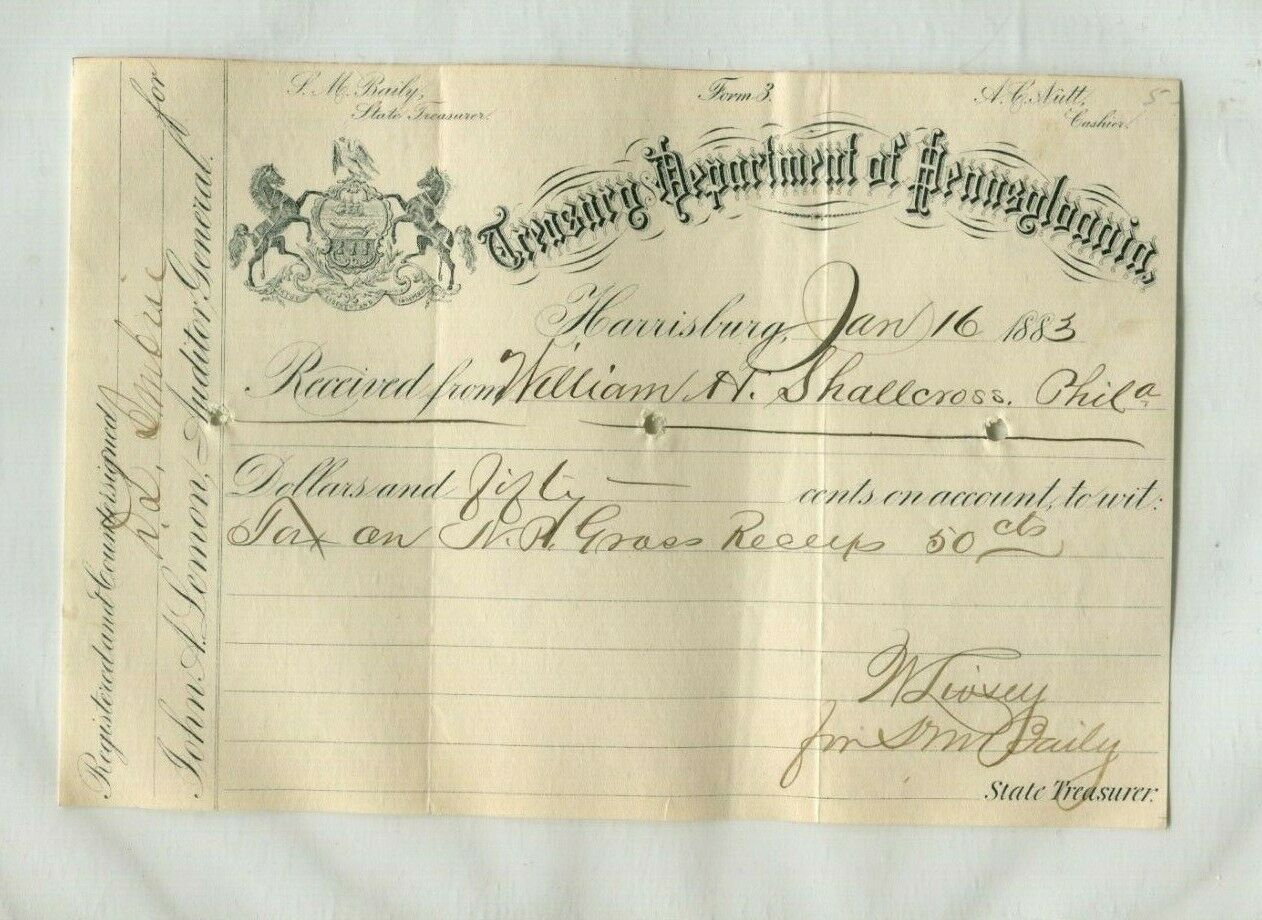 S. M. Baily,
State Treasurer.
Form 3.
A. C. Nutt,
Cashier.
5
Treasury Department of Pennsylvania,
Harrisburg, Jan 16 1883
Received from William H. Shallcross. Phila
Dollars and fifty — cents on account, to wit:
Tax on N. P. Gross Receips 50 cts
W Livsey
for S M Baily
State Treasurer.
Registered and Countersigned
for
John A. Lemon, Auditor General.